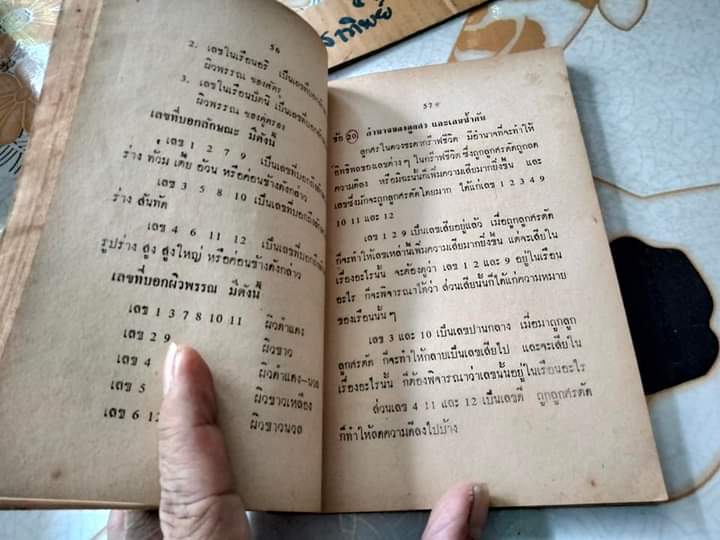 ราทิพย์
56
2. เลขในเรือนอริ เป็นเลขที่บอก
ผิวพรรณ ของศัตรู
3. เลขในเรือนปัตนิ เป็นเลขที่บอก
ผิวพรรณ ของคู่ครอง
เลขที่บอกลักษณะ มีดังนี้
เลข 1 2 7 9 เป็นเลขที่บอกลักษณะ
ร่าง ท้วม เตี้ย อ้วน หรือค่อนข้างดังกล่าว
เลข 3 5 8 10 เป็นเลขที่บอกถึงลักษณะ
ร่าง สันทัด
เลข 4 6 11 12 เป็นเลขที่บอกถึง
รูปร่าง สูง สูงใหญ่ หรือค่อนข้างดังกล่าว
เลขที่บอกผิวพรรณ มีดังนี้
เลข 1 3 7 8 10 11 ผิวดำแดง
เลข 2 9 ผิวขาว
เลข 4 ผิวดำแดง-นวล
เลข 5 ผิวขาวเหลือง
เลข 6 12 ผิวขาวนวล
57
ข้อ 20 อำนาจของลูกศร และเลขซ้ำกัน
ลูกศรในดวงชะตากราฟชีวิต มีอำนาจที่จะทำให้
อิทธิพลของเลขต่าง ๆ ในกราฟชีวิต ซึ่งถูกลูกศรตัดถูกลด
ความดีลง หรือมิฉะนั้นก็เพิ่มความเสียมากยิ่งขึ้น และ
เลขซึ่งมักจะถูกลูกศรตัดโดยมาก ได้แก่เลข 1 2 3 4 9
10 11 และ 12
เลข 1 2 9 เป็นเลขเสียอยู่แล้ว เมื่อถูกลูกศรตัด
ก็จะทำให้เลขเหล่านี้เพิ่มความเสียมากยิ่งขึ้น แต่จะเสียใน
เรื่องอะไรนั้น จะต้องดูว่า เลข 1 2 และ 9 อยู่ในเรือน
อะไร ก็จะพิจารณาได้ว่า ส่วนเสียนั้นก็ได้แก่ความหมาย
ของเรือนนั้น ๆ
เลข 3 และ 10 เป็นเลขปานกลาง เมื่อมาถูกลูก
ลูกศรตัด ก็จะทำให้กลายเป็นเลขเสียไป และจะเสียใน
เรื่องอะไรนั้น ก็ต้องพิจารณาว่าเลขนั้นอยู่ในเรือนอะไร
ส่วนเลข 4 11 และ 12 เป็นเลขดี ถูกลูกศรตัด
ก็ทำให้ลดความดีลงไปบ้าง